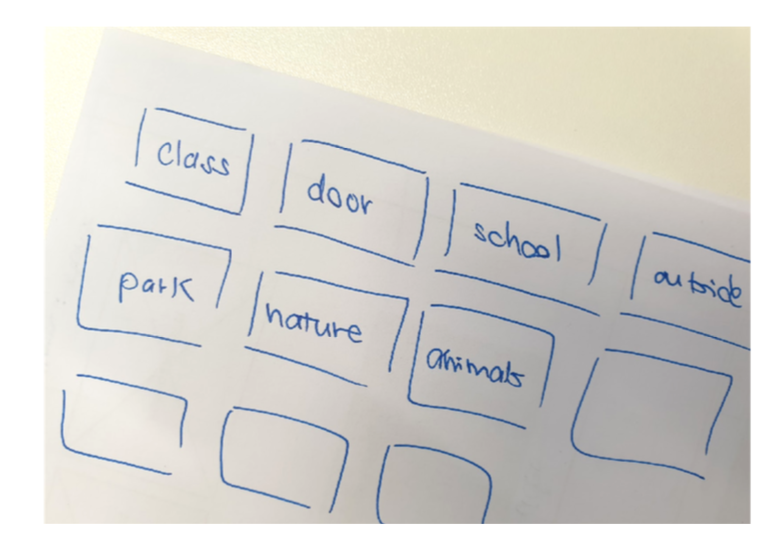 class door school outside
park nature animals